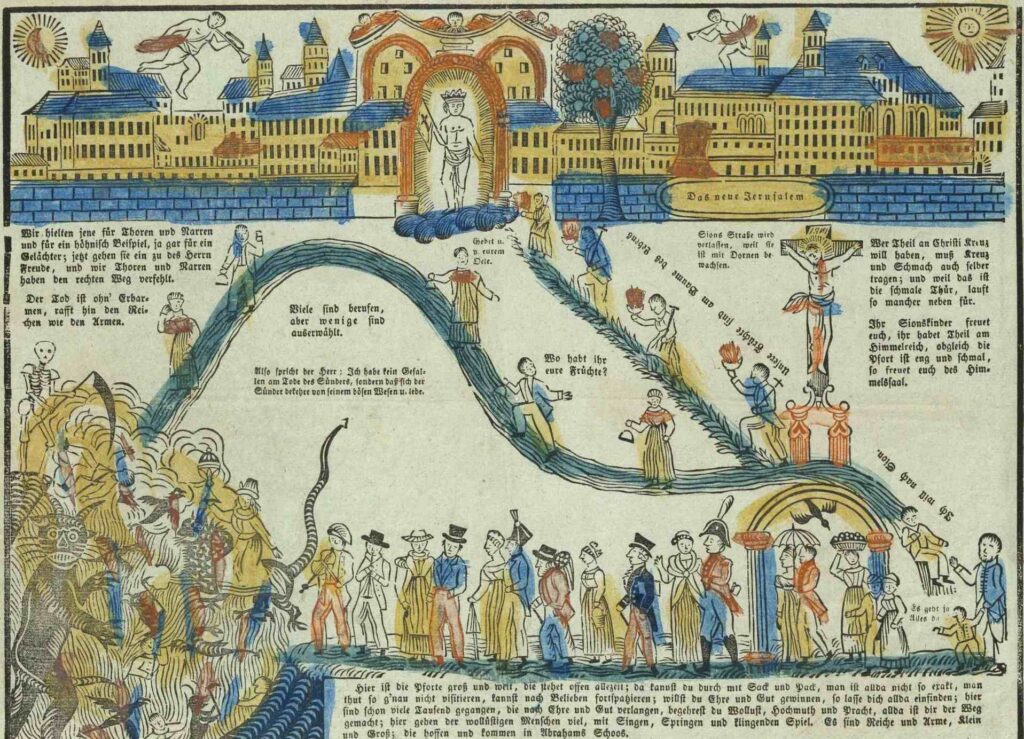 Das neue Jerusalem
Wir hielten jene für Thoren und Narren
und für ein höhnisch Beispiel, ja gar für ein
Gelächter; jetzt gehen sie ein zu des Herrn
Freude, und wir Thoren und Narren
haben den rechten Weg verfehlt.
Der Tod ist ohn' Erbar-
men, rafft hin den Rei-
chen wie den Armen.
Viele sind berufen,
aber wenige sind
auserwählt.
Also spricht der Herr: Ich habe kein Gefal-
len am Tode des Sünders, sondern daß sich der
Sünder bekehre von seinem bösen Wesen u. lebe.
Gebet u.
v. eurem
Oele.
Wo habt ihr
eure Früchte?
Unsere Früchte sind am Baume des Lebens
Sions Straße wird
verlassen, weil sie
ist mit Dornen be-
wachsen.
Wer Theil an Christi Kreuz
will haben, muß Kreuz
und Schmach auch selber
tragen; und weil das ist
die schmale Thür, lauft
so mancher neben für.
Ihr Sionskinder freuet
euch, ihr habet Theil am
Himmelreich, obgleich die
Pfort ist eng und schmal,
so freuet euch des Him-
melssaal.
Ich will nach Sion.
Es geht ja
Alles da
Hier ist die Pforte groß und weit, die stehet offen allezeit; da kannst du durch mit Sack und Pack, man ist allda nicht so exakt, man
thut so g'nau nicht visitiren, kannst nach Belieben fortspatziren; willst du Ehre und Gut gewinnen, so lasse dich allda einfinden; hier
sind schon viele Tausend gegangen, die nach Ehre und Gut verlangen, begehrest du Wollust, Hochmuth und Pracht, allda ist dir der Weg
gemacht; hier gehen der wollüstigen Menschen viel, mit Singen, Springen und klingenden Spiel. Es sind Reiche und Arme, Klein
und Groß; die hoffen und kommen in Abrahams Schoos.